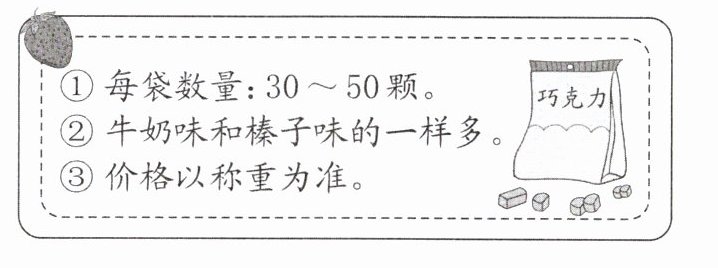 ① 每袋数量：30～50颗。
② 牛奶味和榛子味的一样多。
③ 价格以称重为准。
巧克力